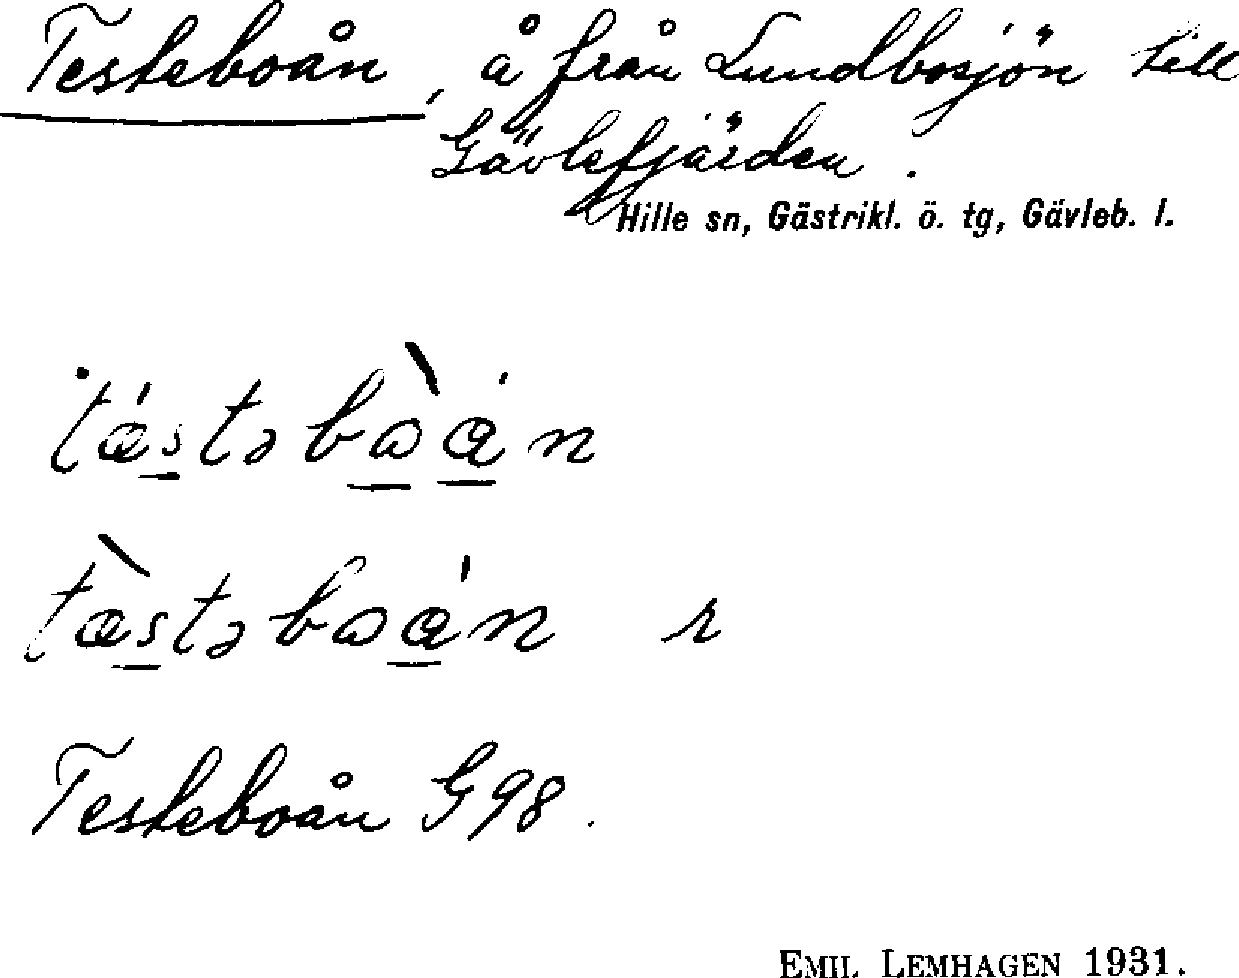 Testeboån, å från Lundbosjön till
Gävlefjärden.
Hille sn, Gästrikl. ö. tg, Gävleb. l.
tǽstəbɷ̀án
tæ̀stəbɷán r
Testeboån G 98.
EMIL LEMHAGEN 1931.